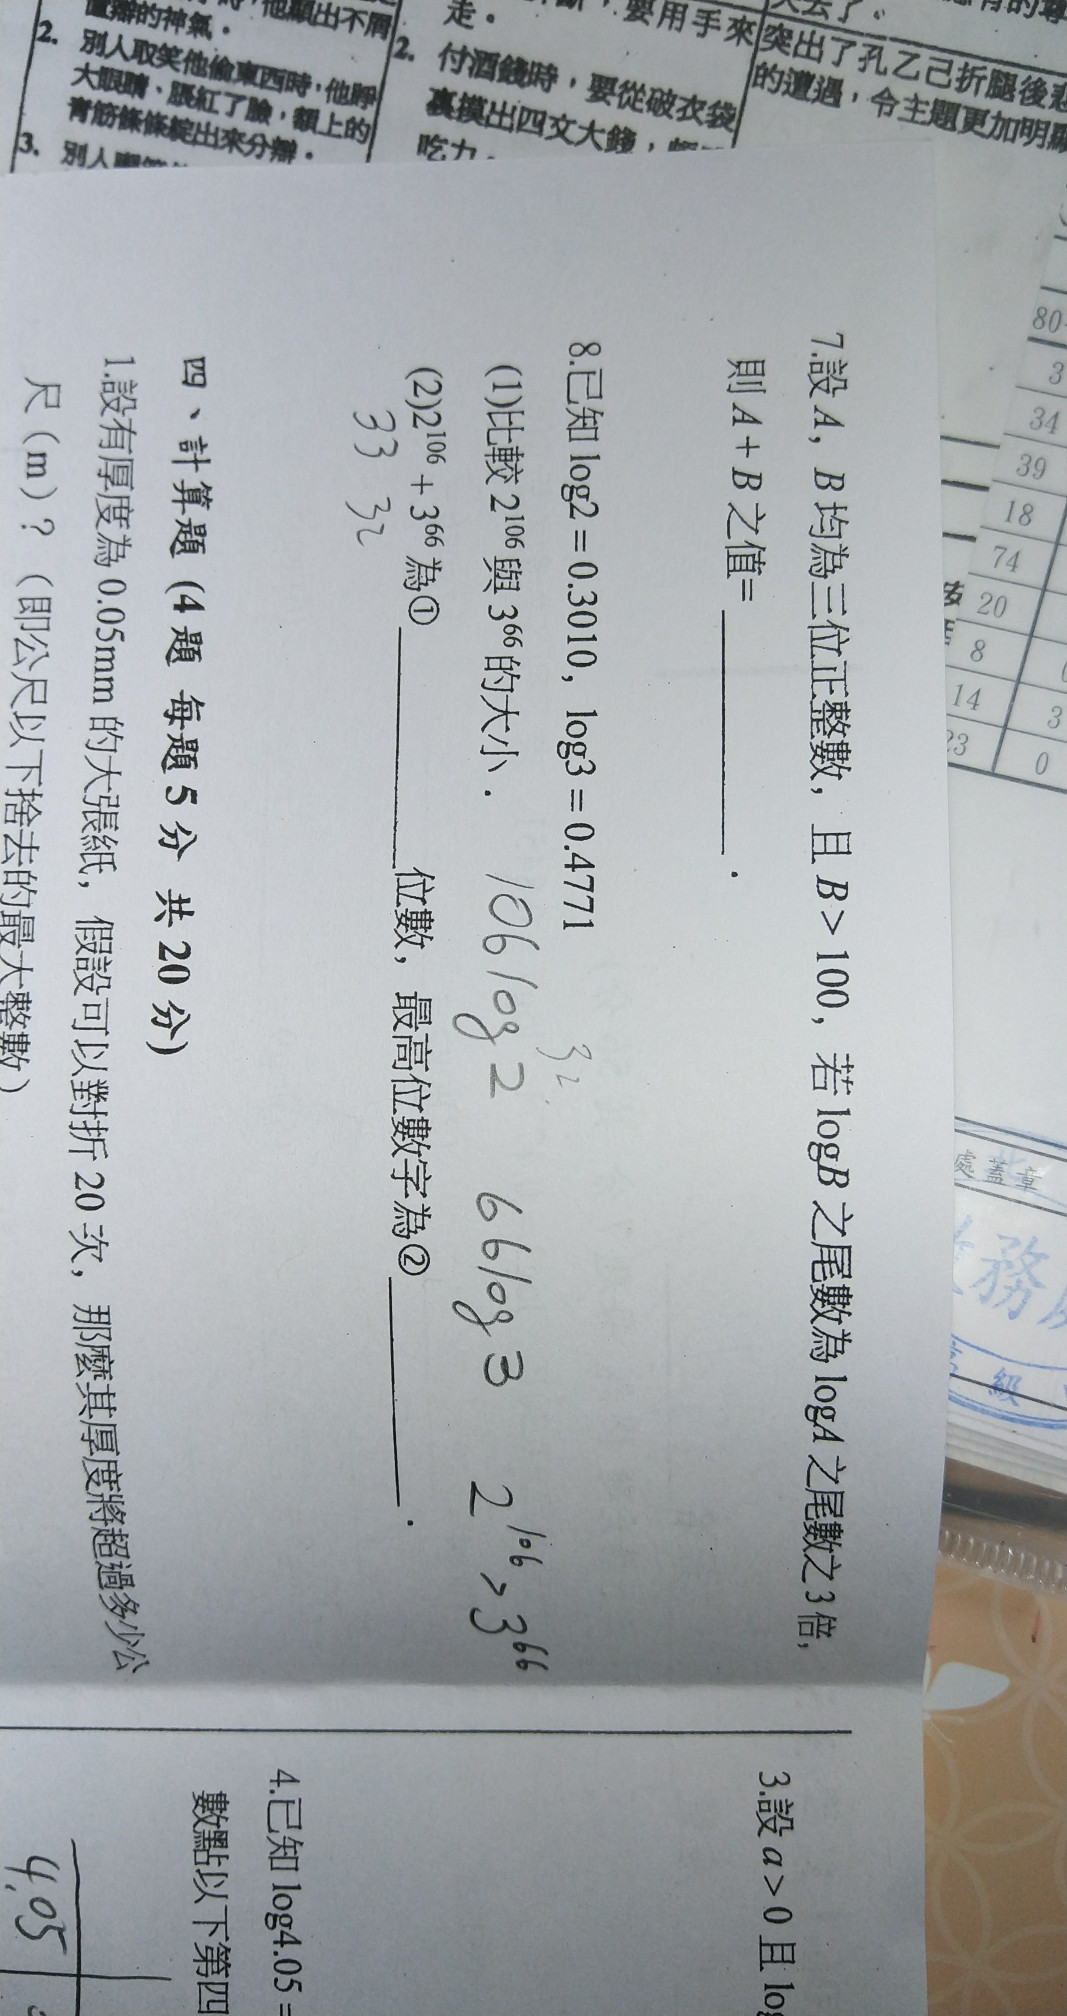 2. 別人取笑他偷東西時，他睜
大眼睛、脹紅了臉，額上的
青筋條條綻出來分辯。
3. 別人
走。
2. 付酒錢時，要從破衣袋
裏摸出四文大錢，
吃力
要用手來
突出了孔乙己折腿後
的遭遇，令主題更加明顯
80
3
34
39
18
74
20
8
14
23
3
0
處蓋章
務
級
7.設 A，B 均為三位正整數，且 B > 100，若 logB 之尾數為 logA 之尾數之 3 倍，
則 A + B 之值= ________ .
8.已知 log2 = 0.3010，log3 = 0.4771
(1)比較 2^106 與 3^66 的大小．
32.
106 log 2 66 log 3 2^106 > 3^66
(2)2^106 + 3^66 為① ________ 位數，最高位數字為② ________ .
33 32
四、計算題 (4 題 每題 5 分 共 20 分)
1.設有厚度為 0.05mm 的大張紙，假設可以對折 20 次，那麼其厚度將超過多少公
尺 (m)？（即公尺以下捨去的最大整數）
3.設 a > 0 且 log
4.已知 log4.05 =
數點以下第四
4.05